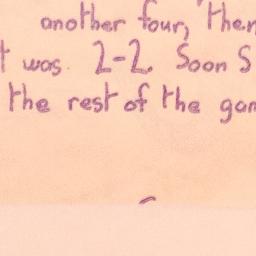 another four, then
t was. 2-2. Soon S
the rest of the gam